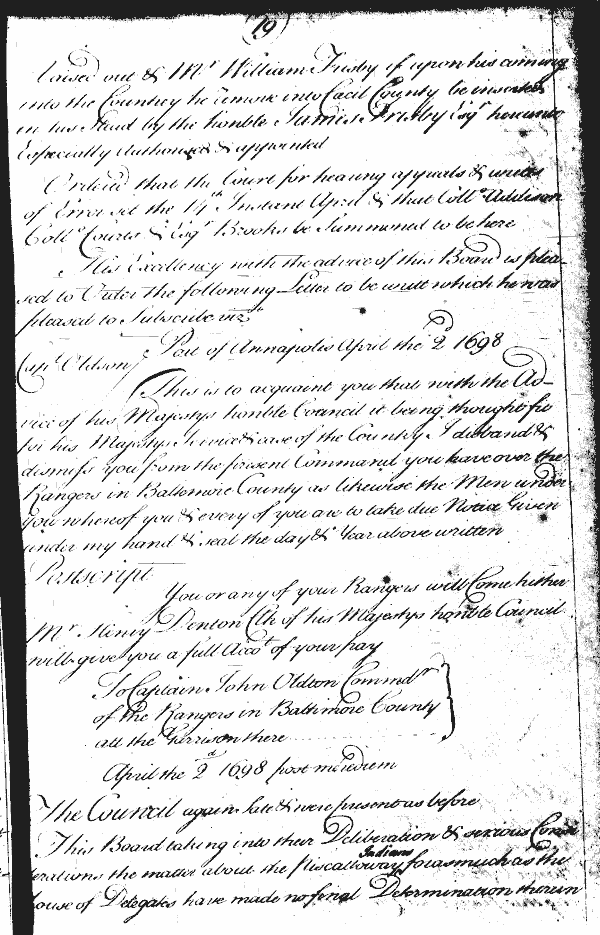 (19)
laied out & Mr William Frisby if upon his coming
into the Countrey he remove into Cecil County be inserted
in his Stead by the honble James Frisby Esqr hereunto
Especially Authorised & appointed
Ordered that the Court for hearing appeals & writts
of Error sit the 14th Instant April & that Collo Addison
Collo Courts & Esqr Brooks be Summoned to be here
His Excellency with the advice of this Board is plea-
sed to Order the following Letter to be writt which he was
pleased to Subscribe vizt
Port of Annapolis April the 2d 1698
Capt Oldton
This is to acquaint you that with the Ad-
vice of his Majestys honble Council it being thought fit
for his Majestys Service & ease of the Country I disband &
dismiss you from the present Command you have over the
Rangers in Baltemore County as likewise the Men under
you whereof you & every of you are to take due Notice Given
under my hand & seal the day & Year above written
Postscript
You or any of your Rangers will Come hither
Mr Henry Denton Clk of his Majestys honble Council
will give you a full Accot of your pay
To Captain John Oldton Commdr
of the Rangers in Baltimore County
att the Garrison there
April the 2d 1698 post meridiem
The Council again sate & were present as before
This Board taking into their Deliberation & serious Consi
derations the matter about the Piscattoway Indians forasmuch as the
house of Delegates have made no final Determination therein